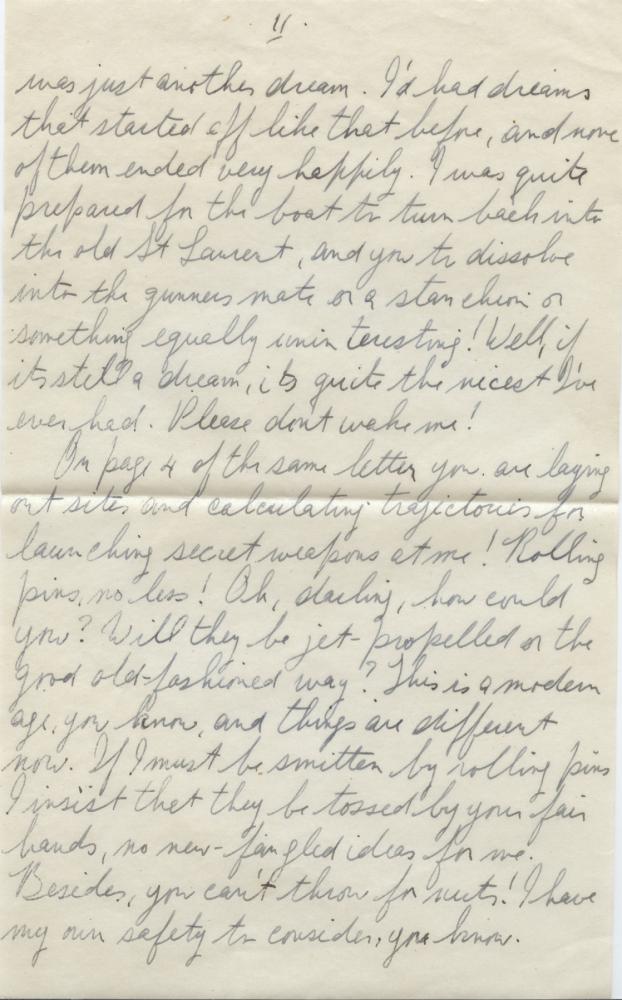 11.
was just another dream. I'd had dreams
that started off like that before, and none
of them ended very happily. I was quite
prepared for the boat to turn back into
the old St Laurent, and you to dissolve
into the gunners mate or a stanchion or
something equally uninteresting! Well, if
its still a dream, its quite the nicest I've
ever had. Please don't wake me!
On page 4 of the same letter you are laying
out sites and calculating trajectories for
launching secret weapons at me! Rolling
pins, no less! Oh, darling, how could
you? Will they be jet-propelled or the
good old-fashioned way? This is a modern
age, you know, and things are different
now. If I must be smitten by rolling pins
I insist that they be tossed by your fair
hands, no new-fangled ideas for me.
Besides, you can't throw for nuts! I have
my own safety to consider, you know.